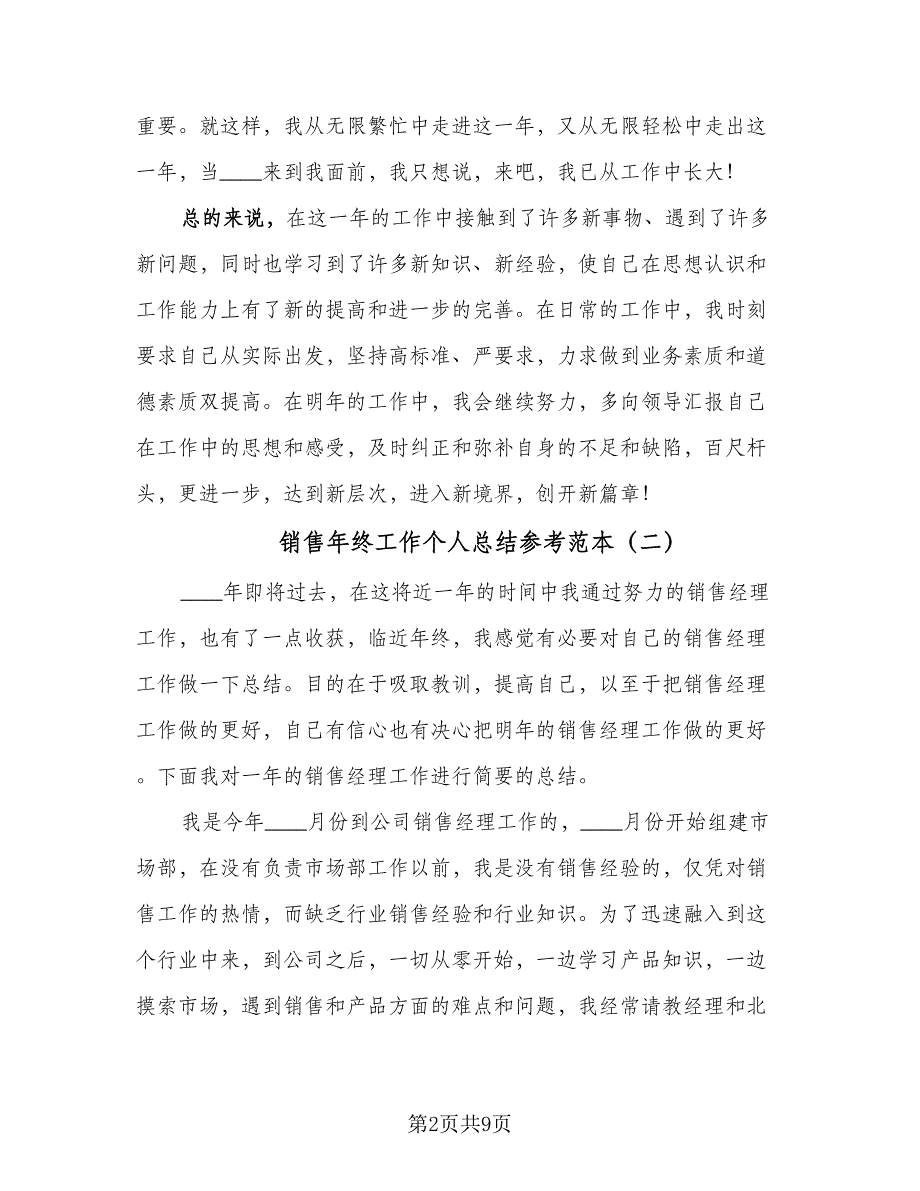 重要。就这样，我从无限繁忙中走进这一年，又从无限轻松中走出这
一年，当____来到我面前，我只想说，来吧，我已从工作中长大！
总的来说，在这一年的工作中接触到了许多新事物、遇到了许多
新问题，同时也学习到了许多新知识、新经验，使自己在思想认识和
工作能力上有了新的提高和进一步的完善。在日常的工作中，我时刻
要求自己从实际出发，坚持高标准、严要求，力求做到业务素质和道
德素质双提高。在明年的工作中，我会继续努力，多向领导汇报自己
在工作中的思想和感受，及时纠正和弥补自身的不足和缺陷，百尺杆
头，更进一步，达到新层次，进入新境界，创开新篇章！
销售年终工作个人总结参考范本（二）
____年即将过去，在这将近一年的时间中我通过努力的销售经理
工作，也有了一点收获，临近年终，我感觉有必要对自己的销售经理
工作做一下总结。目的在于吸取教训，提高自己，以至于把销售经理
工作做的更好，自己有信心也有决心把明年的销售经理工作做的更好
。下面我对一年的销售经理工作进行简要的总结。
我是今年____月份到公司销售经理工作的，____月份开始组建市
场部，在没有负责市场部工作以前，我是没有销售经验的，仅凭对销
售工作的热情，而缺乏行业销售经验和行业知识。为了迅速融入到这
个行业中来，到公司之后，一切从零开始，一边学习产品知识，一边
摸索市场，遇到销售和产品方面的难点和问题，我经常请教经理和北
第2页共9页